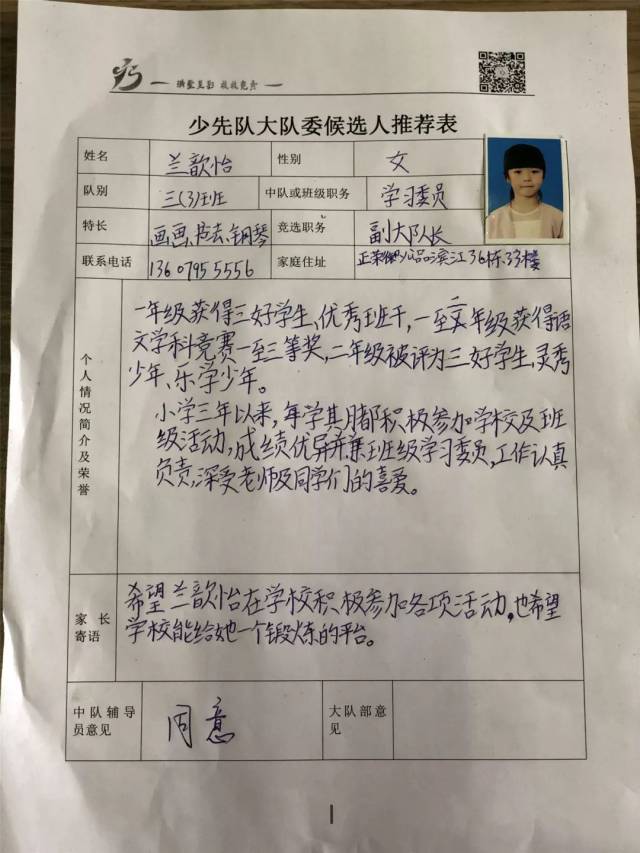 少先队大队委候选人推荐表
姓名 兰歆怡 性别 女
队别 三(3)班 中队或班级职务 学习委员
特长 画画、钢琴 竞选职务 副大队长
联系电话 13607955556 家庭住址 滨江36栋33楼
个人情况简介及荣誉
一年级获得三好学生、优秀班干,一至二年级获得语
文学科竞赛一至三等奖,二年级被评为三好学生、灵秀
少年、乐学少年。
小学三年以来,每学期都积极参加学校及班
级活动,成绩优异并兼班级学习委员,工作认真
负责,深受老师及同学们的喜爱。
家长
寄语
希望兰歆怡在学校积极参加各项活动,也希望
学校能给她一个锻炼的平台。
中队辅导 同意 大队部意
员意见 见